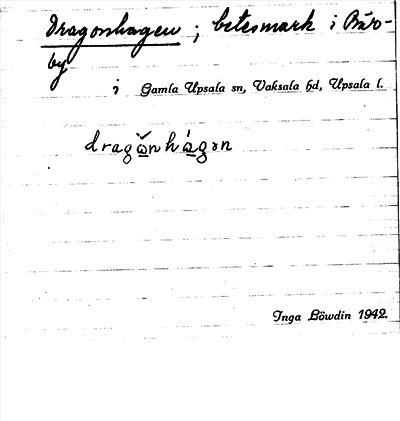 Dragonhagen ; betesmark i Bär-
by
i Gamla Upsala sn, Vaksala hd, Upsala l.
dragω̌nhágən
Inga Löwdin 1942.